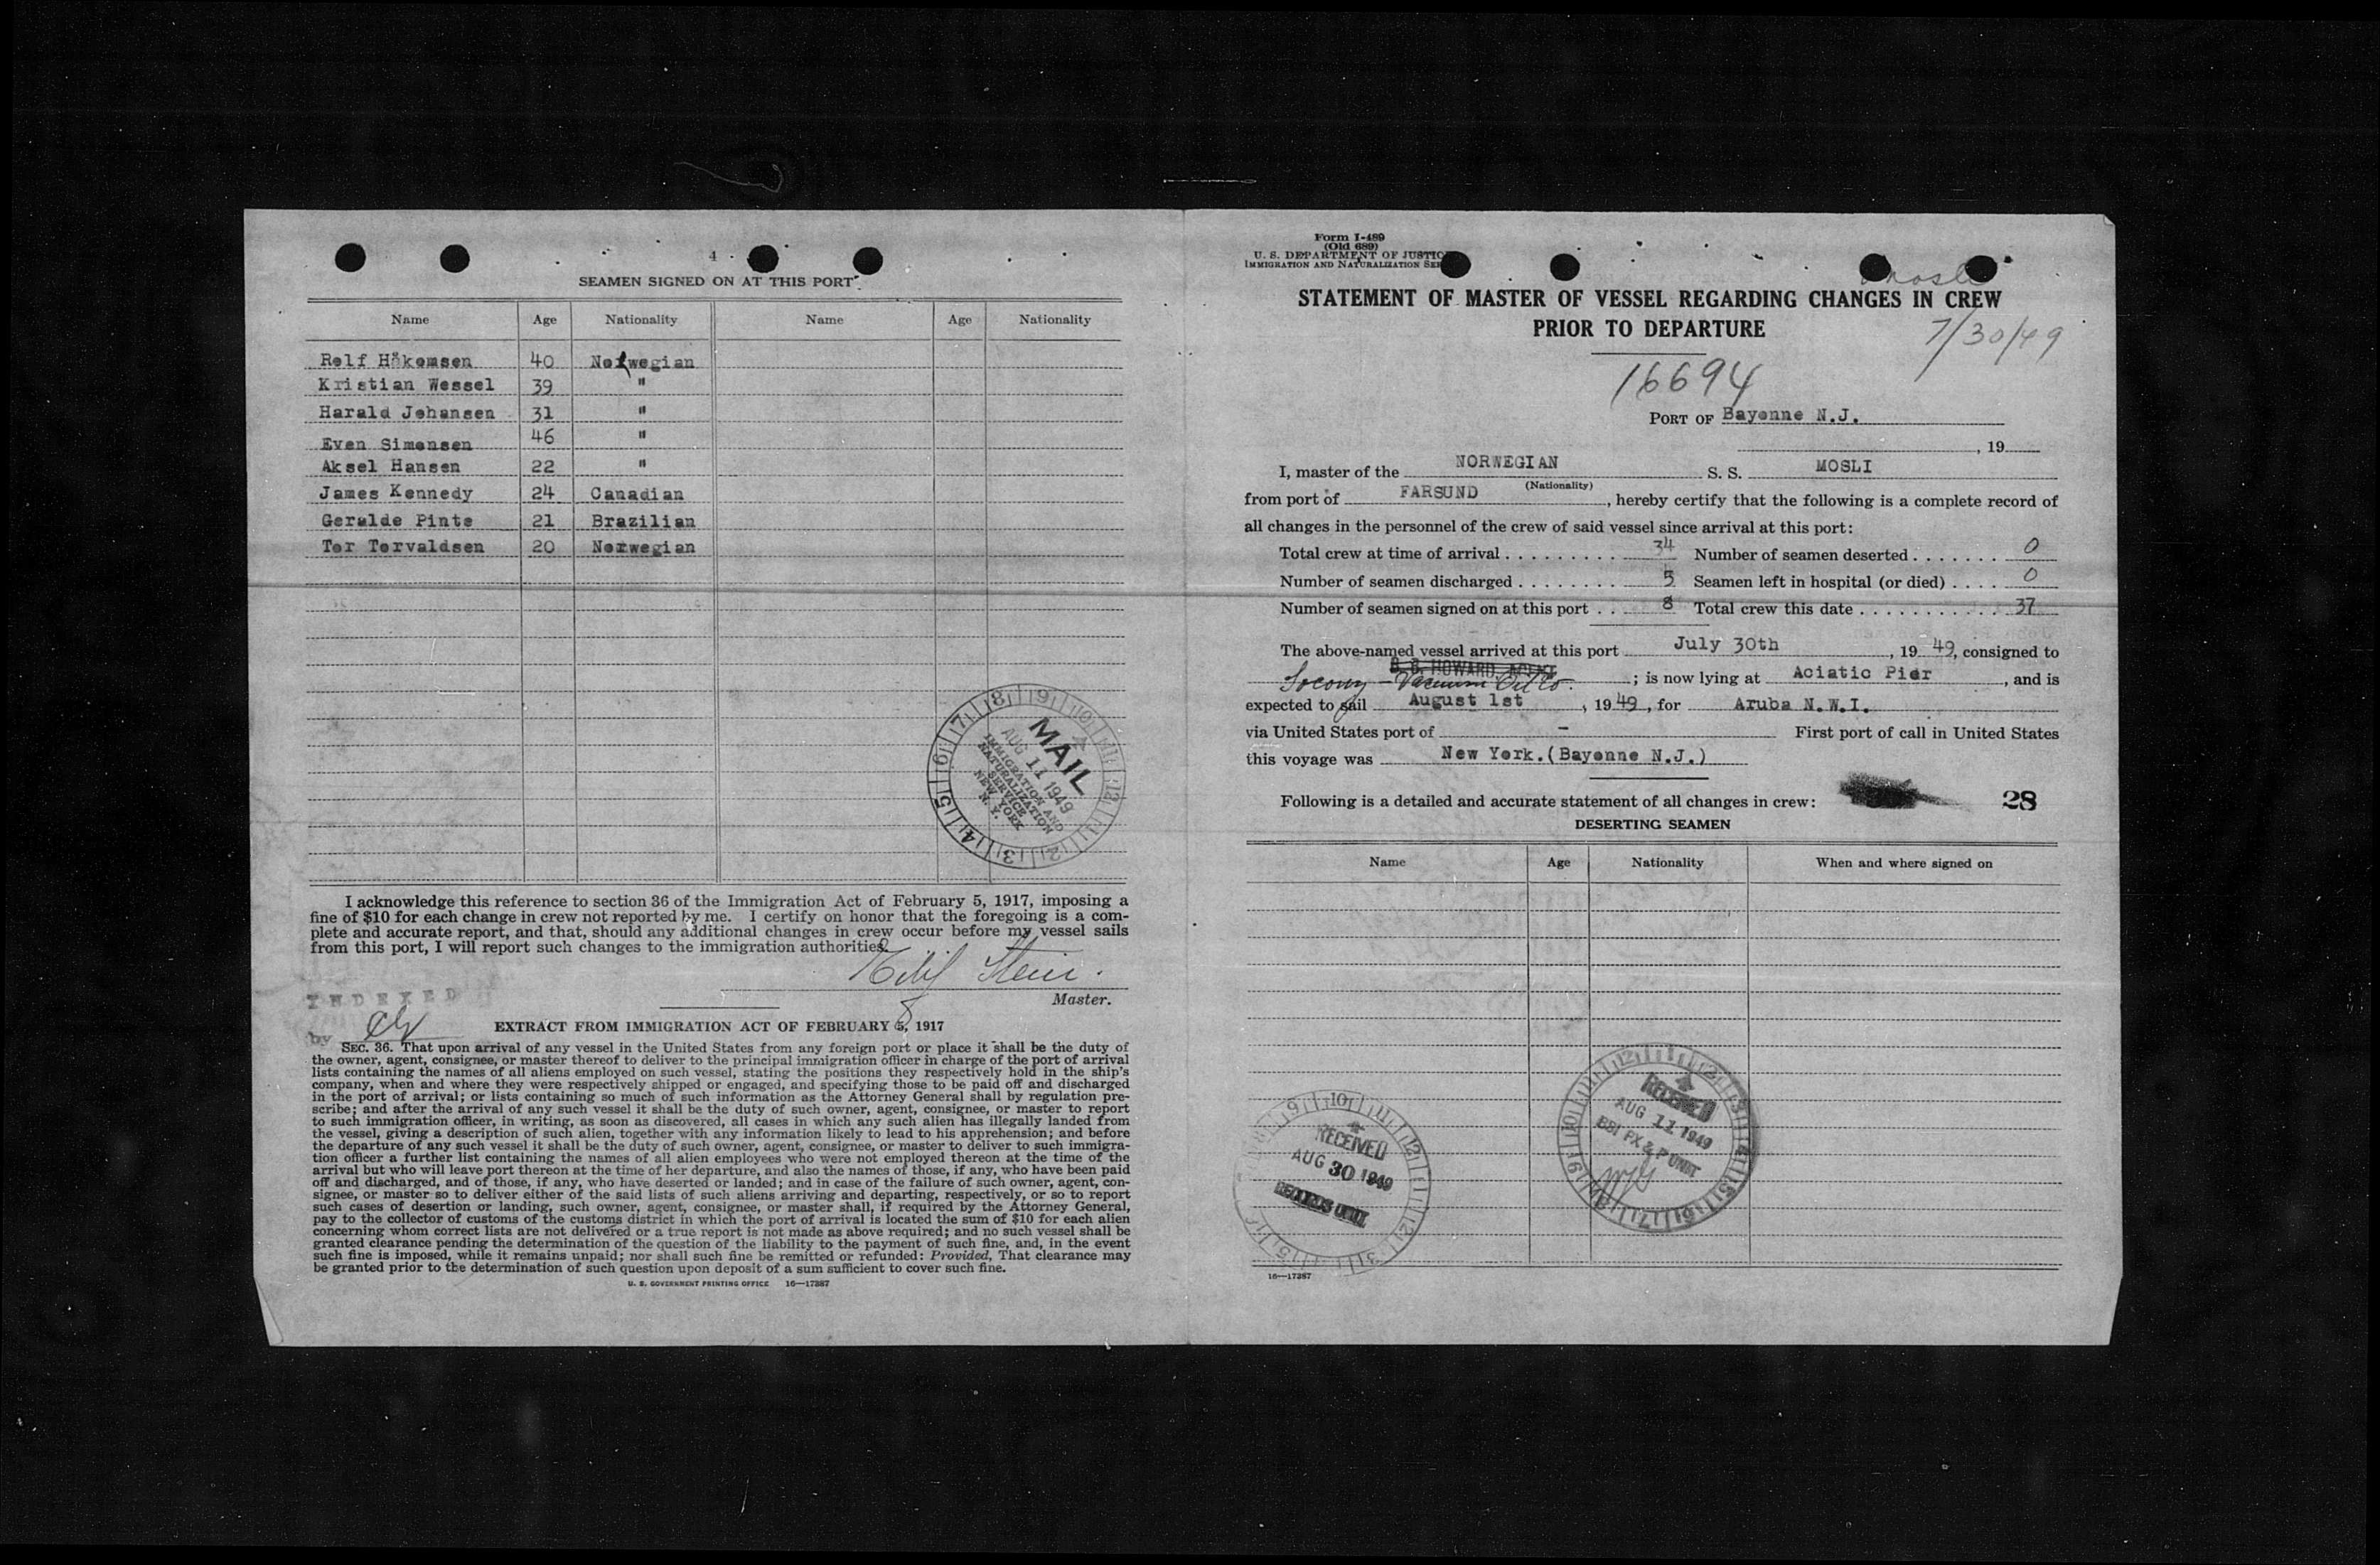 4
SEAMEN SIGNED ON AT THIS PORT
Name Age Nationality Name Age Nationality
Rolf Håkomsen 40 Norwegian
Kristian Wessel 39 "
Harald Johansen 31 "
Even Simonsen 46 "
Aksel Hansen 22 "
James Kennedy 24 Canadian
Geralde Pinto 21 Brazilian
Tor Torvaldsen 20 Norwegian
MAIL
AUG 11 1949
IMMIGRATION AND
NATURALIZATION
SERVICE
NEW YORK
N. Y.
I acknowledge this reference to section 36 of the Immigration Act of February 5, 1917, imposing a
fine of $10 for each change in crew not reported by me. I certify on honor that the foregoing is a com-
plete and accurate report, and that, should any additional changes in crew occur before my vessel sails
from this port, I will report such changes to the immigration authorities.
Eilif Stein.
Master.
INDEXED
by
EXTRACT FROM IMMIGRATION ACT OF FEBRUARY 5, 1917
SEC. 36. That upon arrival of any vessel in the United States from any foreign port or place it shall be the duty of
the owner, agent, consignee, or master thereof to deliver to the principal immigration officer in charge of the port of arrival
lists containing the names of all aliens employed on such vessel, stating the positions they respectively hold in the ship's
company, when and where they were respectively shipped or engaged, and specifying those to be paid off and discharged
in the port of arrival; or lists containing so much of such information as the Attorney General shall by regulation pre-
scribe; and after the arrival of any such vessel it shall be the duty of such owner, agent, consignee, or master to report
to such immigration officer, in writing, as soon as discovered, all cases in which any such alien has illegally landed from
the vessel, giving a description of such alien, together with any information likely to lead to his apprehension; and before
the departure of any such vessel it shall be the duty of such owner, agent, consignee, or master to deliver to such immigra-
tion officer a further list containing the names of all alien employees who were not employed thereon at the time of the
arrival but who will leave port thereon at the time of her departure, and also the names of those, if any, who have been paid
off and discharged, and of those, if any, who have deserted or landed; and in case of the failure of such owner, agent, con-
signee, or master so to deliver either of the said lists of such aliens arriving and departing, respectively, or so to report
such cases of desertion or landing, such owner, agent, consignee, or master shall, if required by the Attorney General,
pay to the collector of customs of the customs district in which the port of arrival is located the sum of $10 for each alien
concerning whom correct lists are not delivered or a true report is not made as above required; and no such vessel shall be
granted clearance pending the determination of the question of the liability to the payment of such fine, and, in the event
such fine is imposed, while it remains unpaid; nor shall such fine be remitted or refunded: Provided, That clearance may
be granted prior to the determination of such question upon deposit of a sum sufficient to cover such fine.
U. S. GOVERNMENT PRINTING OFFICE 16—17387
Form I-489
(Old 689)
U. S. DEPARTMENT OF JUSTIC
IMMIGRATION AND NATURALIZATION SER
Mosli
STATEMENT OF MASTER OF VESSEL REGARDING CHANGES IN CREW
PRIOR TO DEPARTURE
7/30/49
16694
PORT OF Bayonne N.J.
, 19
I, master of the NORWEGIAN S. S. MOSLI
(Nationality)
from port of FARSUND , hereby certify that the following is a complete record of
all changes in the personnel of the crew of said vessel since arrival at this port:
Total crew at time of arrival 34 Number of seamen deserted 0
Number of seamen discharged 5 Seamen left in hospital (or died) 0
Number of seamen signed on at this port 8 Total crew this date 37
The above-named vessel arrived at this port July 30th , 19 49, consigned to
B. S. HOWARD, AGENT
Socony - Vacuum Oil Co. ; is now lying at Aciatic Pier , and is
expected to sail August 1st , 19 49, for Aruba N.W.I.
via United States port of - First port of call in United States
this voyage was New York.(Bayonne N.J.)
Following is a detailed and accurate statement of all changes in crew: 28
DESERTING SEAMEN
Name Age Nationality When and where signed on
RECEIVED
AUG 11 1949
BSI FX & P UNIT
RECEIVED
AUG 30 1949
RECORDS UNIT
16—17387